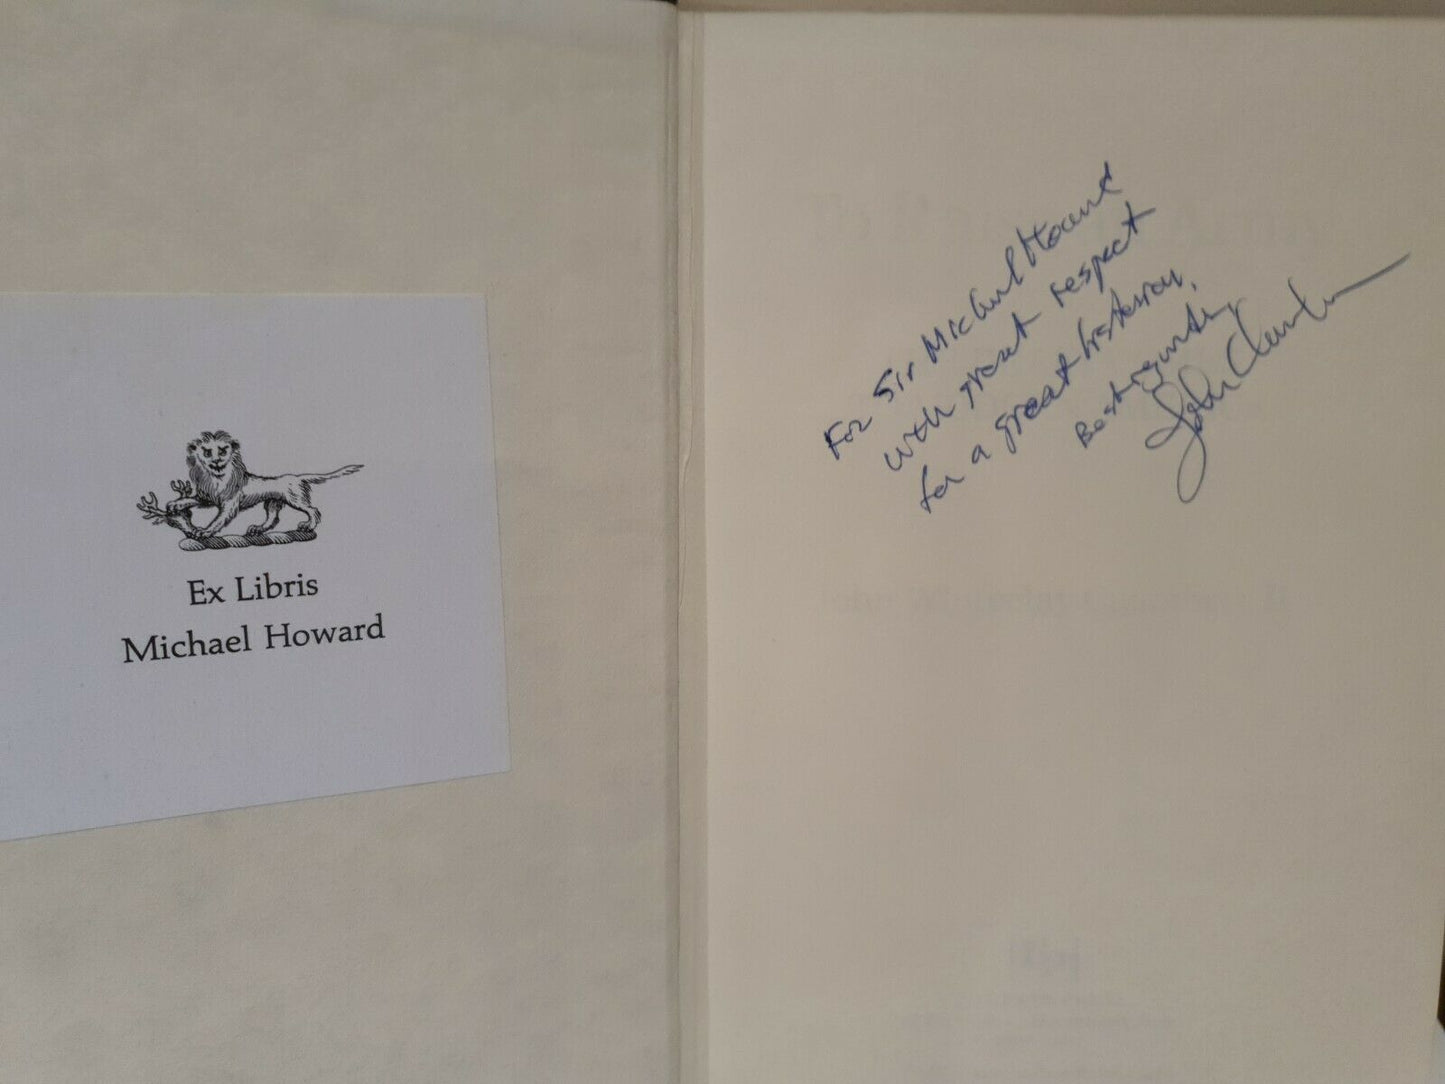 Ex Libris
Michael Howard
For Sir Michael Howard
with great respect
for a great historian.
Best regards,
John